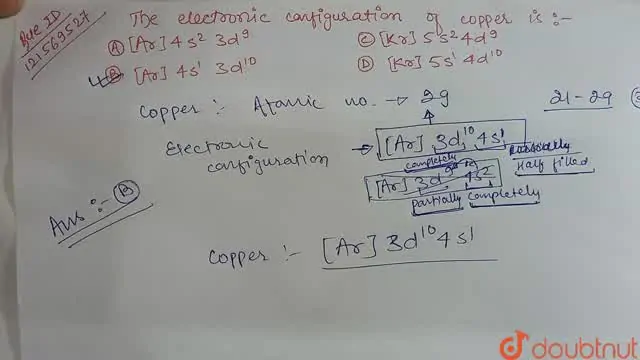 Que ID
121569527
The electronic configuration of copper is :-
Ⓐ [Ar] 4s² 3d⁹
Ⓒ [Kr] 5s² 4d⁹
Ⓑ [Ar] 4s¹ 3d¹⁰
Ⓓ [Kr] 5s¹ 4d¹⁰
Copper :- Atomic no. → 29
21-29
Electronic configuration → [Ar] 3d¹⁰ 4s¹
completely
Half filled
[Ar] 3d⁹ 4s²
partially completely
Ans :- Ⓑ
Copper :- [Ar] 3d¹⁰ 4s¹
doubtnut